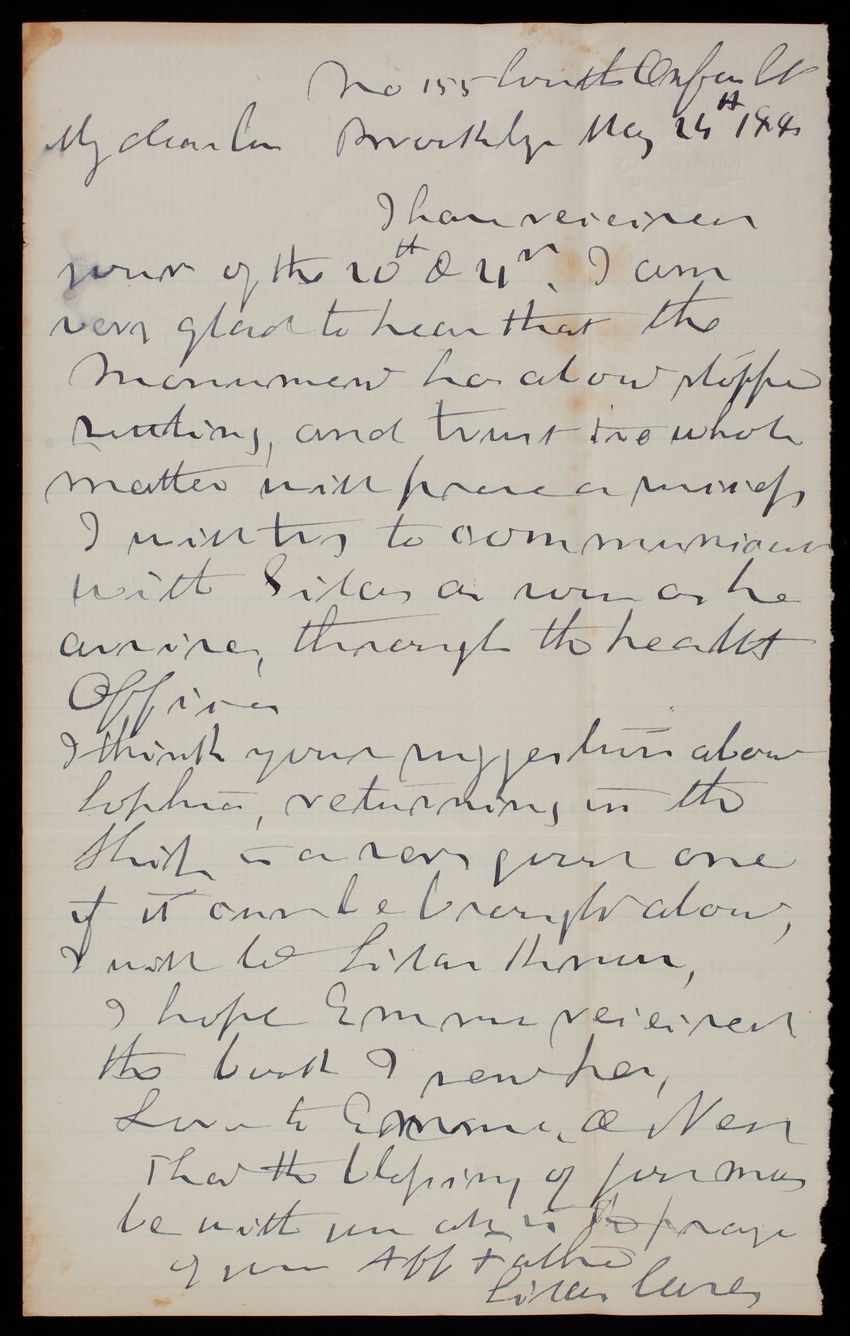 No 155 South Oxford St
My dear Son Brooklyn May 24th 188
I have received
yours of the 20th & 21st. I am
very glad to hear that the
Monument has about stopped
settling, and trust the whole
matter will prove a success
I will try to communicate
with Silas as soon as he
arrives, through the health
Officer
I think your suggestion about
Sophia, returning in the
Ship is a very good one
if it can be brought about,
I will let Silas know,
I hope Emma received
the book I sent her,
Love to Emma, & Nell
That the blessing of
be with you all is the prayer
of your Aff Father
Silas Casey